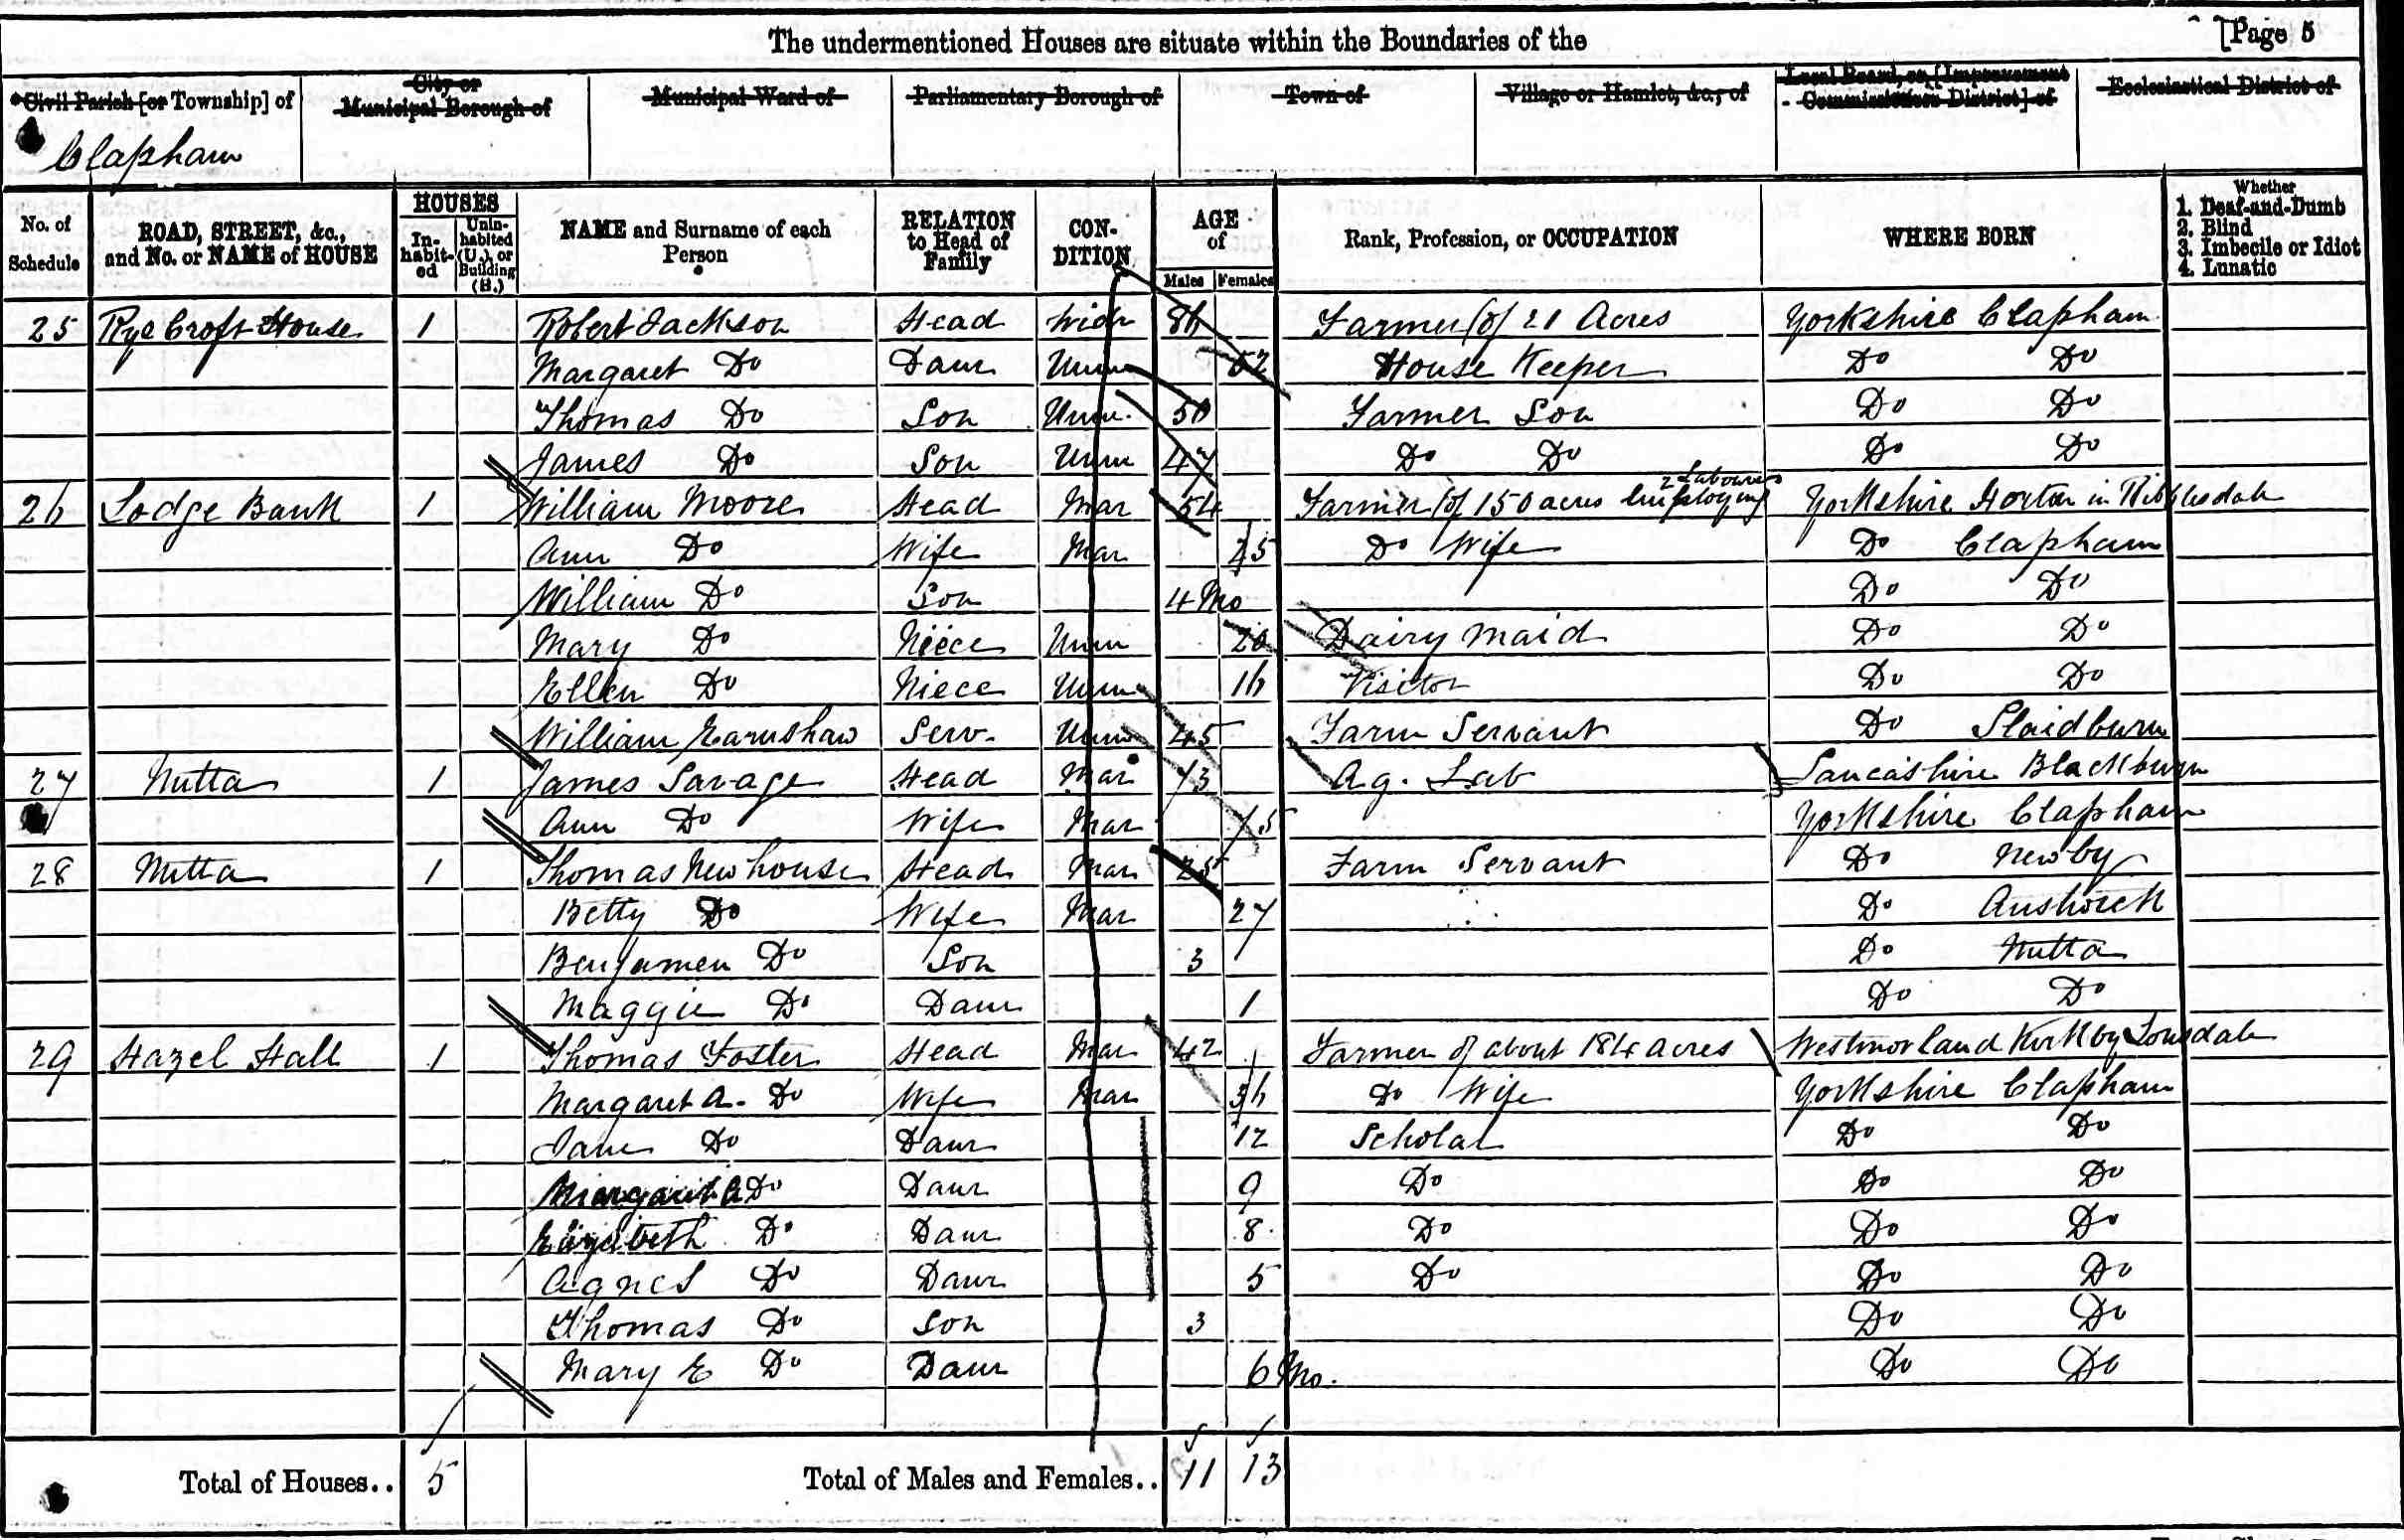 [Page 5
The undermentioned Houses are situate within the Boundaries of the
Civil Parish [or Township] of
City or Municipal Borough of
Municipal Ward of
Parliamentary Borough of
Town of
Village or Hamlet, &c., of
Local Board, or [Improvement Commissioners District] of
Ecclesiastical District of
Clapham
No. of Schedule
ROAD, STREET, &c., and No. or NAME of HOUSE
HOUSES
In-habit-ed
Unin-habited (U.), or Building (B.)
NAME and Surname of each Person
RELATION to Head of Family
CON-DITION
AGE of
Males Females
Rank, Profession, or OCCUPATION
WHERE BORN
Whether
1. Deaf-and-Dumb
2. Blind
3. Imbecile or Idiot
4. Lunatic
25 Rye Croft House 1 Robert Jackson Head Widr 86 Farmer of 21 Acres Yorkshire Clapham
Margaret Do Daur Unm 52 House Keeper Do Do
Thomas Do Son Unm. 50 Farmer Son Do Do
James Do Son Unm 47 Do Do Do Do
26 Lodge Bank 1 William Moore Head Mar 54 Farmer of 150 acres Employing 2 Labourers Yorkshire Horton in Ribblesdale
Ann Do Wife Mar 35 Do Wife Do Clapham
William Do Son 4 Mo Do Do
Mary Do Niece Unm 20 Dairy maid Do Do
Ellen Do Niece Unm 16 Visitor Do Do
William Earnshaw Serv. Unm 45 Farm Servant Do Slaidburn
27 Nutta 1 James Savage Head Mar 73 Ag. Lab Lancashire Blackburn
Ann Do Wife Mar 75 Yorkshire Clapham
28 Nutta 1 Thomas Newhouse Head Mar 25 Farm Servant Do Newby
Betty Do Wife Mar 27 Do Austwick
Benjamen Do Son 3 Do Nutta
Maggie Do Daur 1 Do Do
29 Hazel Hall 1 Thomas Foster Head Mar 42 Farmer of about 184 acres Westmorland Kirkby Lonsdale
Margaret A. Do Wife Mar 36 Do Wife Yorkshire Clapham
Jane Do Daur 12 Scholar Do Do
Margaret A Do Daur 9 Do Do Do
Elizabeth Do Daur 8 Do Do Do
Agnes Do Daur 5 Do Do Do
Thomas Do Son 3 Do Do
Mary E Do Daur 6 Mo. Do Do
Total of Houses.. 5 Total of Males and Females.. 11 13